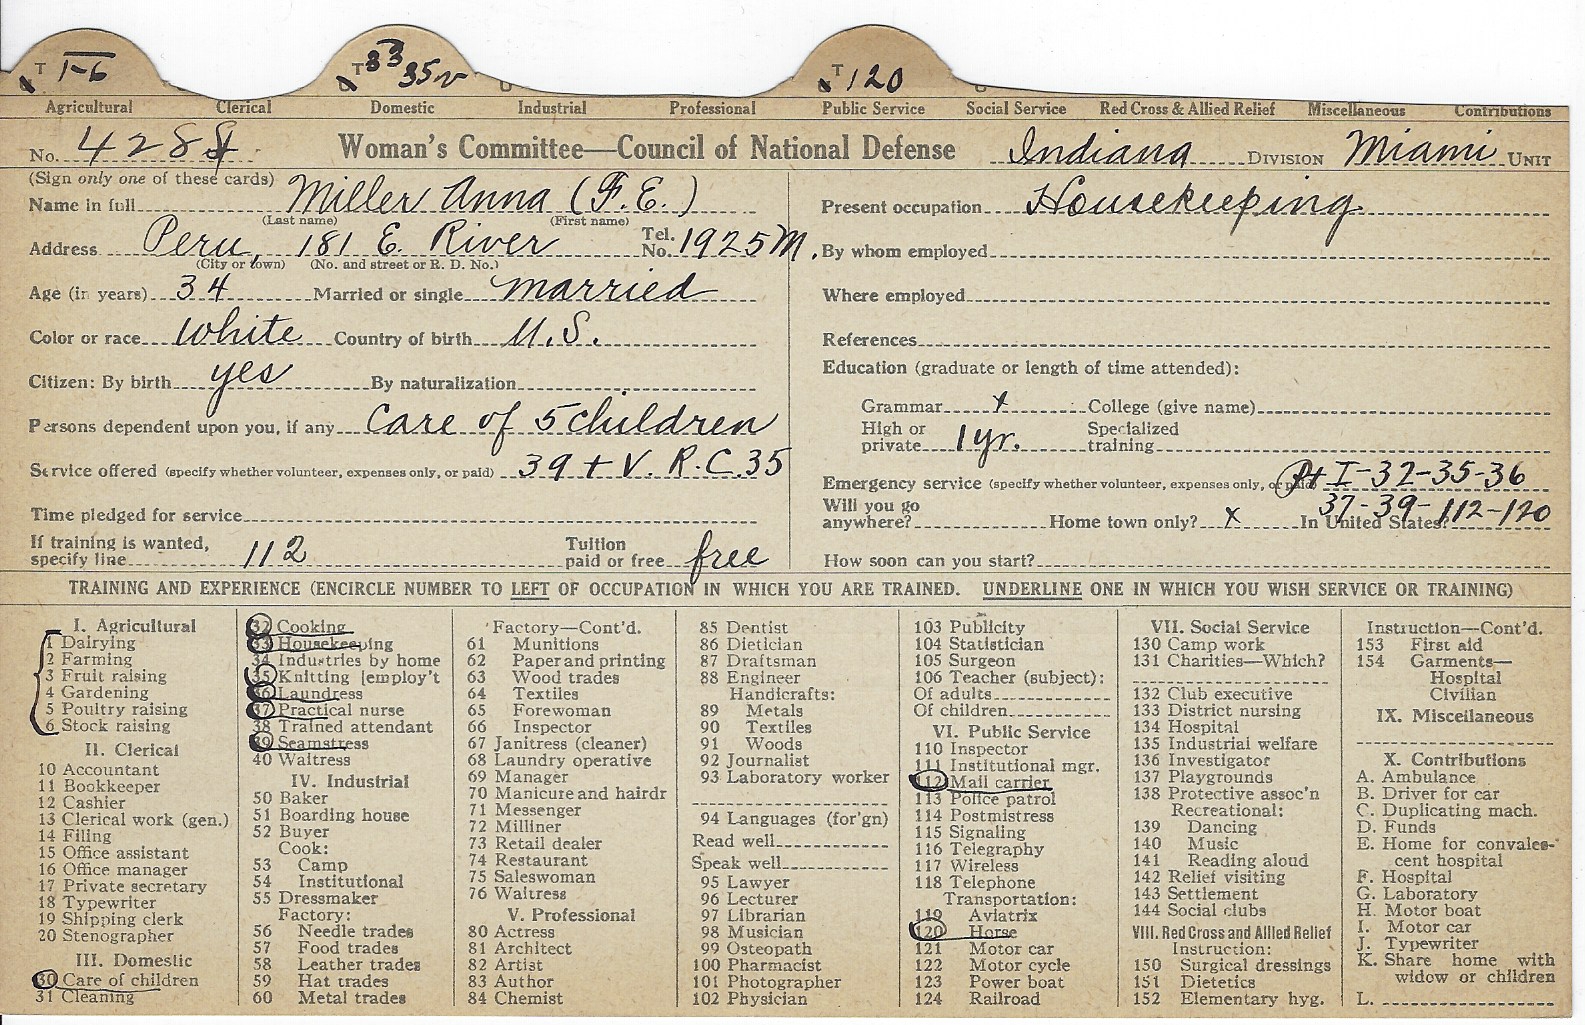 T 1-6 T 33 35 T 120
Agricultural Clerical Domestic Industrial Professional Public Service Social Service Red Cross & Allied Relief Miscellaneous Contributions
No. 428 Woman's Committee—Council of National Defense Indiana DIVISION Miami UNIT
(Sign only one of these cards)
Name in full Miller Anna (F.E.)
(Last name) (First name)
Address Peru, 181 E. River Tel. No. 1925M.
(City or town) (No. and street or R. D. No.)
Age (in years) 34 Married or single married
Color or race white Country of birth U.S.
Citizen: By birth yes By naturalization
Persons dependent upon you, if any Care of 5 children
Service offered (specify whether volunteer, expenses only, or paid) 39 + V. R.C. 35
Time pledged for service
If training is wanted, specify line 112 Tuition paid or free free
Present occupation Housekeeping
By whom employed
Where employed
References
Education (graduate or length of time attended):
Grammar x College (give name)
High or private 1 yr. Specialized training
Emergency service (specify whether volunteer, expenses only, or paid) Pt I-32-35-36
37-39-112-120
Will you go anywhere? Home town only? x In United States?
How soon can you start?
TRAINING AND EXPERIENCE (ENCIRCLE NUMBER TO LEFT OF OCCUPATION IN WHICH YOU ARE TRAINED. UNDERLINE ONE IN WHICH YOU WISH SERVICE OR TRAINING)
I. Agricultural
1 Dairying
2 Farming
3 Fruit raising
4 Gardening
5 Poultry raising
6 Stock raising
II. Clerical
10 Accountant
11 Bookkeeper
12 Cashier
13 Clerical work (gen.)
14 Filing
15 Office assistant
16 Office manager
17 Private secretary
18 Typewriter
19 Shipping clerk
20 Stenographer
III. Domestic
30 Care of children
31 Cleaning
32 Cooking
33 Housekeeping
34 Industries by home
35 Knitting [employ't
36 Laundress
37 Practical nurse
38 Trained attendant
39 Seamstress
40 Waitress
IV. Industrial
50 Baker
51 Boarding house
52 Buyer
Cook:
53 Camp
54 Institutional
55 Dressmaker
Factory:
56 Needle trades
57 Food trades
58 Leather trades
59 Hat trades
60 Metal trades
Factory—Cont'd.
61 Munitions
62 Paper and printing
63 Wood trades
64 Textiles
65 Forewoman
66 Inspector
67 Janitress (cleaner)
68 Laundry operative
69 Manager
70 Manicure and hairdr
71 Messenger
72 Milliner
73 Retail dealer
74 Restaurant
75 Saleswoman
76 Waitress
V. Professional
80 Actress
81 Architect
82 Artist
83 Author
84 Chemist
85 Dentist
86 Dietician
87 Draftsman
88 Engineer
Handicrafts:
89 Metals
90 Textiles
91 Woods
92 Journalist
93 Laboratory worker
94 Languages (for'gn)
Read well
Speak well
95 Lawyer
96 Lecturer
97 Librarian
98 Musician
99 Osteopath
100 Pharmacist
101 Photographer
102 Physician
103 Publicity
104 Statistician
105 Surgeon
106 Teacher (subject):
Of adults
Of children
VI. Public Service
110 Inspector
111 Institutional mgr.
112 Mail carrier
113 Police patrol
114 Postmistress
115 Signaling
116 Telegraphy
117 Wireless
118 Telephone
Transportation:
119 Aviatrix
120 Horse
121 Motor car
122 Motor cycle
123 Power boat
124 Railroad
VII. Social Service
130 Camp work
131 Charities—Which?
132 Club executive
133 District nursing
134 Hospital
135 Industrial welfare
136 Investigator
137 Playgrounds
138 Protective assoc'n
Recreational:
139 Dancing
140 Music
141 Reading aloud
142 Relief visiting
143 Settlement
144 Social clubs
VIII. Red Cross and Allied Relief
Instruction:
150 Surgical dressings
151 Dietetics
152 Elementary hyg.
Instruction—Cont'd.
153 First aid
154 Garments—
Hospital
Civilian
IX. Miscellaneous
X. Contributions
A. Ambulance
B. Driver for car
C. Duplicating mach.
D. Funds
E. Home for convales-
cent hospital
F. Hospital
G. Laboratory
H. Motor boat
I. Motor car
J. Typewriter
K. Share home with
widow or children
L.